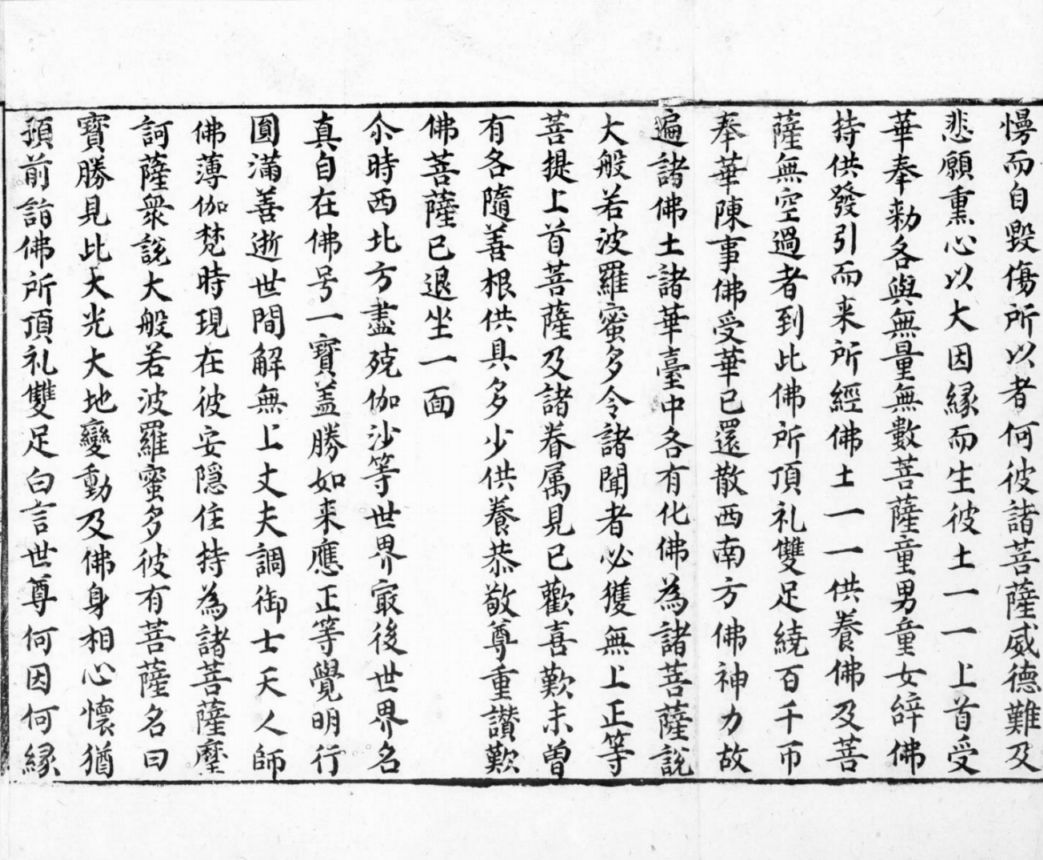 慢而自毀傷所以者何彼諸菩薩威德難及
悲願熏心以大因緣而生彼土一一上首受
華奉勑各與無量無數菩薩童男童女辝佛
持供發引而来所經佛土一一供養佛及菩
薩無空過者到此佛所頂礼雙足繞百千帀
奉華陳事佛受華已還散西南方佛神力故
遍諸佛土諸華臺中各有化佛為諸菩薩說
大般若波羅蜜多令諸聞者必獲無上正等
菩提上首菩薩及諸眷属見已歡喜歎未曾
有各隨善根供具多少供養恭敬尊重讚歎
佛菩薩已退坐一面
尒時西北方盡殑伽沙等世界㝡後世界名
真自在佛号一寶盖勝如来應正等覺明行
圓滿善逝世間解無上丈夫調御士天人師
佛薄伽梵時現在彼安隱住持為諸菩薩摩
訶薩衆說大般若波羅蜜多彼有菩薩名曰
寶勝見此大光大地變動及佛身相心懷猶
預前詣佛所頂礼雙足白言世尊何因何緣